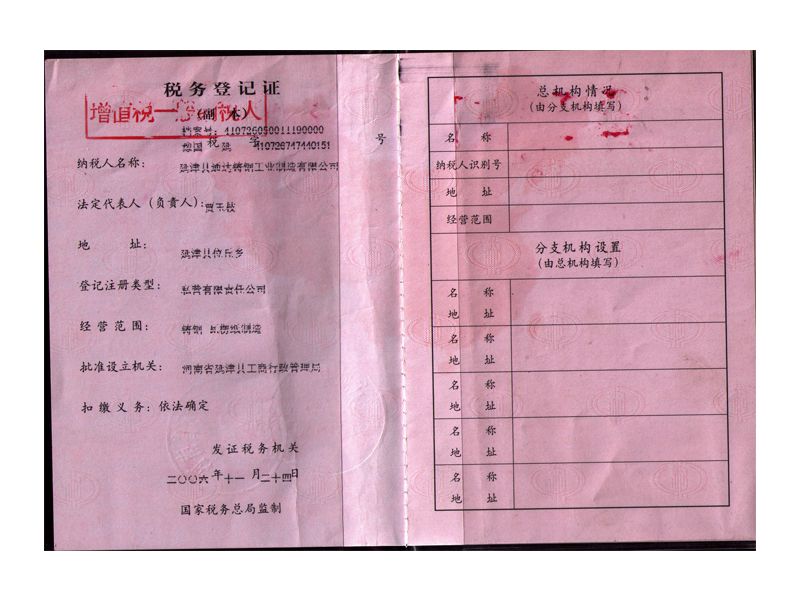 税务登记证
增值税一般纳税人
(副 本)
档案号：410726050011190000
豫国 税 延 字 410726747440151 号
纳税人名称：延津县通达铸钢工业制造有限公司
法定代表人（负责人）：贾玉枝
地 址：延津县位丘乡
登记注册类型：私营有限责任公司
经 营 范 围：铸钢
批准设立机关：河南省延津县工商行政管理局
扣 缴 义 务：依法确定
发证税务机关
二〇〇六 年 十一 月 二十四日
国家税务总局监制
总机构情况
(由分支机构填写)
名 称
纳税人识别号
地 址
经营范围
分支机构设置
(由总机构填写)
名 称
地 址
名 称
地 址
名 称
地 址
名 称
地 址
名 称
地 址